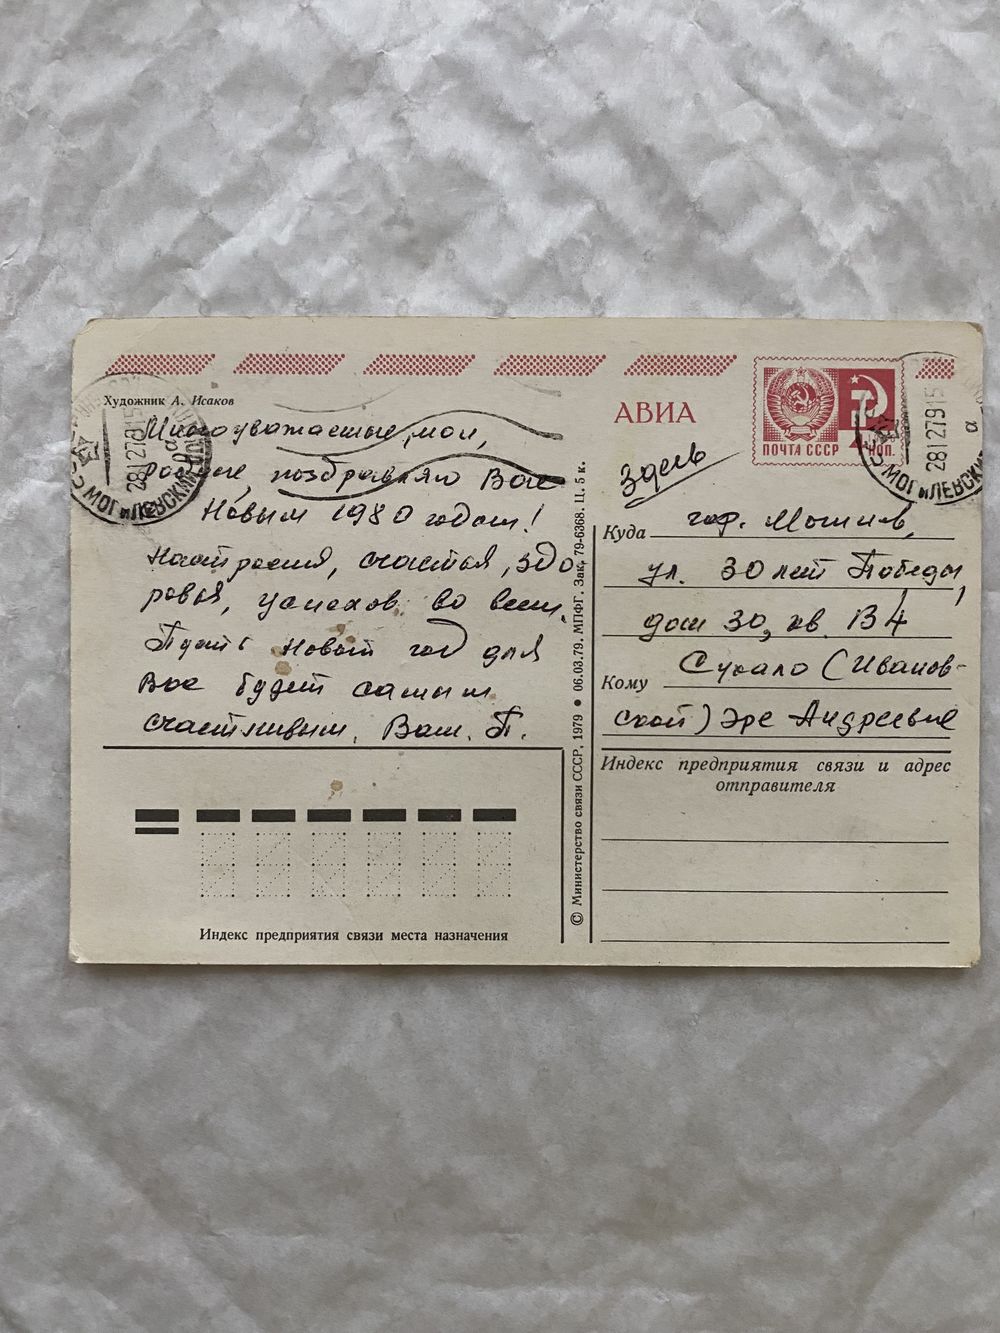 Художник А. Исаков
Многоуважаемые мои,
родные, поздравляю Вас
Новым 1980 годом!
Настроения, счастья, здо
ровья, успехов во всем.
Пусть Новый год для
Вас будет самым
счастливым. Ваш. П.
Индекс предприятия связи места назначения
© Министерство связи СССР, 1979 • 06.03.79. МПФГ. Зак. 79-6368. Ц. 5 к.
АВИА
ПОЧТА СССР
КОП.
28127915
а
МОГИЛЕВСКИЙ
28127915
а
МОГИЛЕВСК
Здесь
Куда гор. Могилев,
ул. 30 лет Победы,
дом 30, кв. В4
Кому Сукало (Иванов-
ской) Эре Андреевне
Индекс предприятия связи и адрес
отправителя